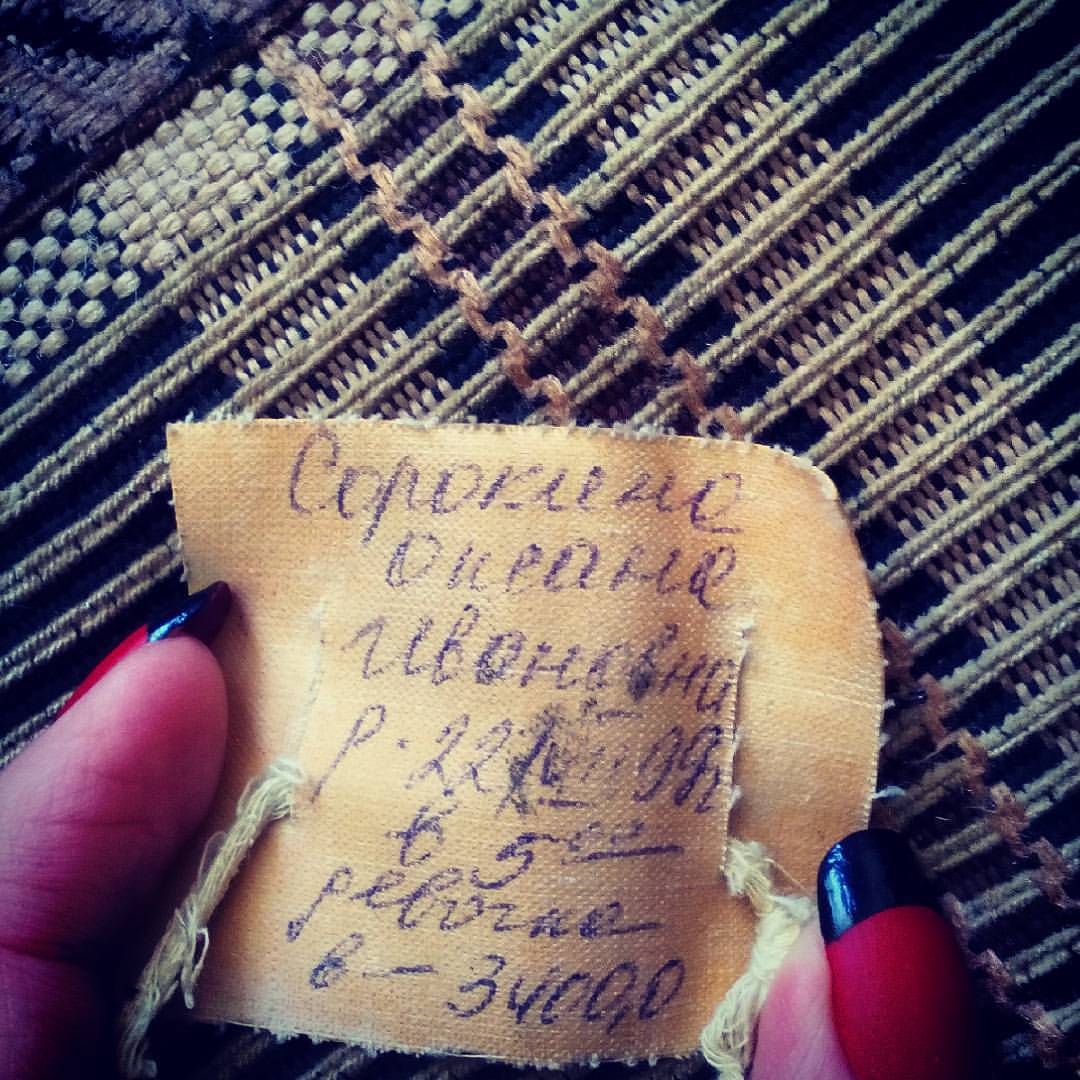 Сорокина
Оксана
Ивановна
р. 22
в 5⁰⁰
девочка
в – 3400,0